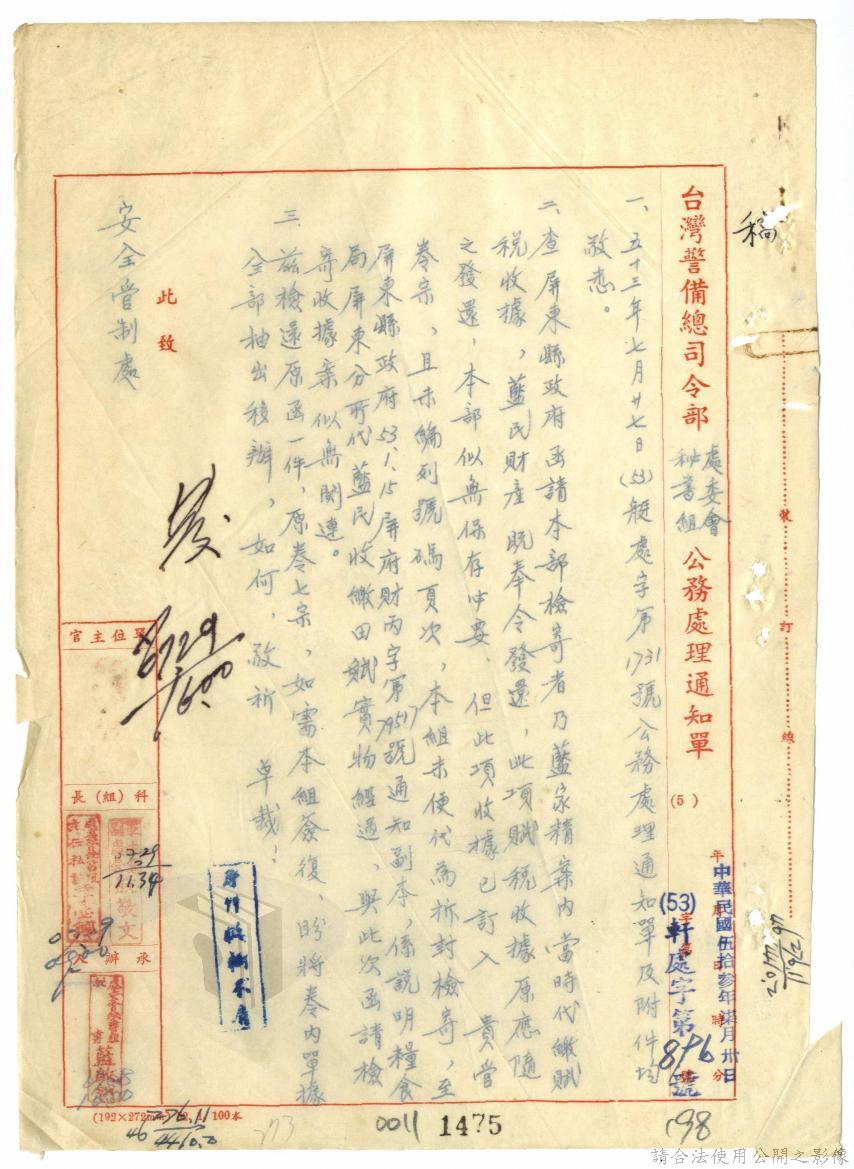 稿
裝 訂 線
台灣警備總司令部 處委會秘書組 公務處理通知單
(5)
中華民國伍拾參年柒月卅日
(53)軒處字第896號
一、五十三年七月廿七日(53)艇處字第1731號公務處理通知單及附件均
敬悉。
二、查屏東縣政府函請本部檢寄者乃藍家精案內當時代繳賦
稅收據,藍民財產既奉令發還,此項賦稅收據原應隨
之發還,本部似無保存必要、但此項收據已訂入 貴管
卷宗、且未編列號碼頁次,本組未便代為拆封檢寄,至
屏東縣政府53.1.15屏府財丙字第79517號通知副本,係說明糧食
局屏東分所代藍民收繳田賦實物經過、與此次函請檢
寄收據案似無關連。
三、茲檢還原函一件,原卷七宗,如需本組簽復、盼將卷內單據
全部抽出移辦,如何,敬祈 卓裁!
此致
安全管制處
發
0729
1600
單位主官
科(組)長
敬文
0729
11.34
承辦人
(192×272 100本
4676.11
4410.2
773
0011
1475
198
請合法使用公開之影像